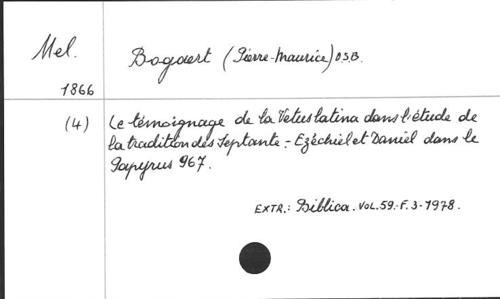 Mel.
Bogaert (Pierre-Maurice) O.S.B.
1866
(4) Le témoignage de la Vetus latina dans l'étude de
la tradition des Septante. - Ezéchiel et Daniel dans le
Papyrus 967.
EXTR.: Biblica. VOL.59.-F.3-1978.